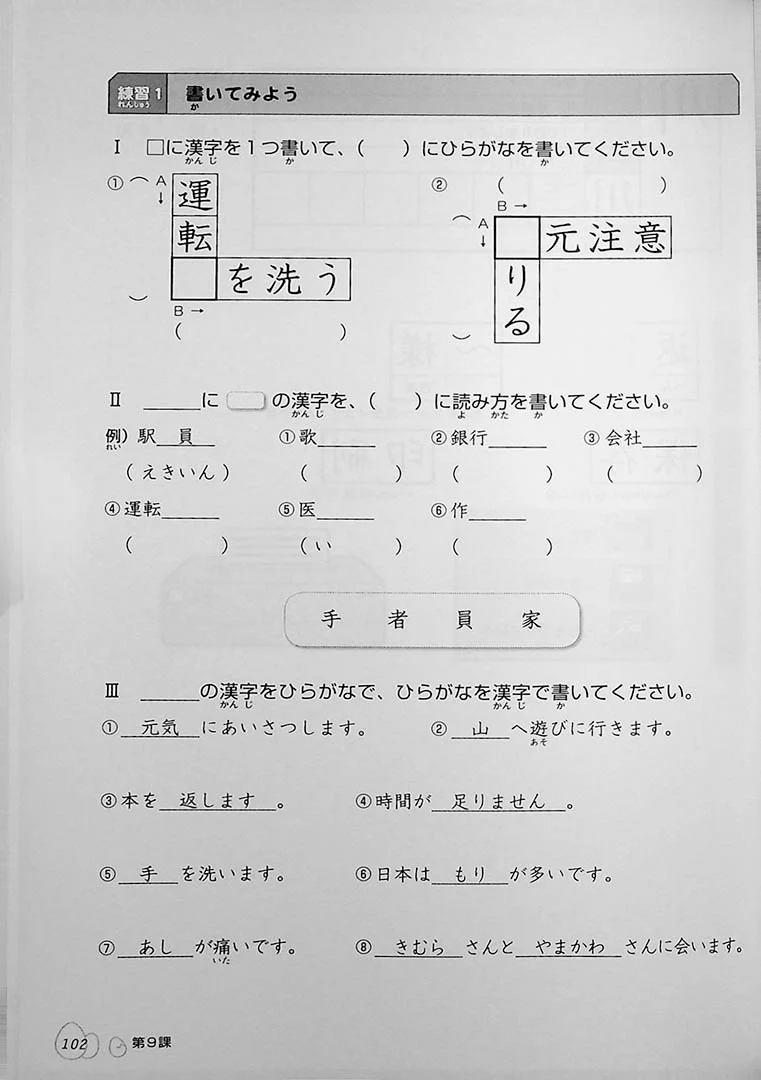 練習1 書いてみよう
れんしゅう か
Ⅰ □に漢字を1つ書いて、( )にひらがなを書いてください。
かんじ か か
① ( ) A ↓ 運転□
□を洗う
B →
( )
② ( )
B →
( ) A ↓ □元注意
□りる
Ⅱ ______に□の漢字を、( )に読み方を書いてください。
かんじ よ かた か
例)駅 員 ①歌______ ②銀行______ ③会社______
れい
(えきいん) ( ) ( ) ( )
④運転______ ⑤医______ ⑥作______
( ) (い ) ( )
手 者 員 家
Ⅲ ______の漢字をひらがなで、ひらがなを漢字で書いてください。
かんじ かんじ か
① 元気 にあいさつします。 ② 山 へ遊びに行きます。
あそ
③本を 返します 。 ④時間が 足りません 。
⑤ 手 を洗います。 ⑥日本は もり が多いです。
⑦ あし が痛いです。 ⑧ きむら さんと やまかわ さんに会います。
いた
102 第9課